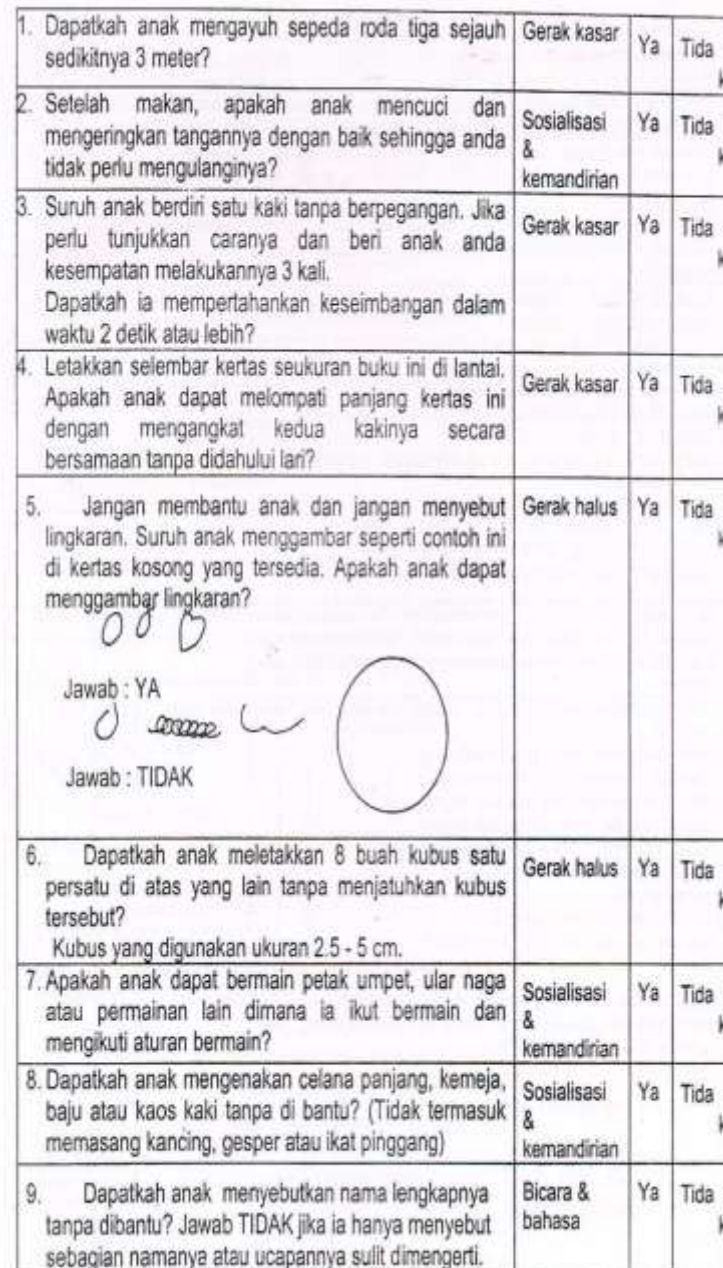 1. Dapatkah anak mengayuh sepeda roda tiga sejauh
sedikitnya 3 meter?
Gerak kasar
Ya
Tida
k
2. Setelah makan, apakah anak mencuci dan
mengeringkan tangannya dengan baik sehingga anda
tidak perlu mengulanginya?
Sosialisasi
&
kemandirian
Ya
Tida
k
3. Suruh anak berdiri satu kaki tanpa berpegangan. Jika
perlu tunjukkan caranya dan beri anak anda
kesempatan melakukannya 3 kali.
Dapatkah ia mempertahankan keseimbangan dalam
waktu 2 detik atau lebih?
Gerak kasar
Ya
Tida
k
4. Letakkan selembar kertas seukuran buku ini di lantai.
Apakah anak dapat melompati panjang kertas ini
dengan mengangkat kedua kakinya secara
bersamaan tanpa didahului lari?
Gerak kasar
Ya
Tida
k
5. Jangan membantu anak dan jangan menyebut
lingkaran. Suruh anak menggambar seperti contoh ini
di kertas kosong yang tersedia. Apakah anak dapat
menggambar lingkaran?
Jawab : YA
Jawab : TIDAK
Gerak halus
Ya
Tida
k
6. Dapatkah anak meletakkan 8 buah kubus satu
persatu di atas yang lain tanpa menjatuhkan kubus
tersebut?
Kubus yang digunakan ukuran 2.5 - 5 cm.
Gerak halus
Ya
Tida
k
7. Apakah anak dapat bermain petak umpet, ular naga
atau permainan lain dimana ia ikut bermain dan
mengikuti aturan bermain?
Sosialisasi
&
kemandirian
Ya
Tida
k
8. Dapatkah anak mengenakan celana panjang, kemeja,
baju atau kaos kaki tanpa di bantu? (Tidak termasuk
memasang kancing, gesper atau ikat pinggang)
Sosialisasi
&
kemandirian
Ya
Tida
k
9. Dapatkah anak menyebutkan nama lengkapnya
tanpa dibantu? Jawab TIDAK jika ia hanya menyebut
sebagian namanya atau ucapannya sulit dimengerti.
Bicara &
bahasa
Ya
Tida
k